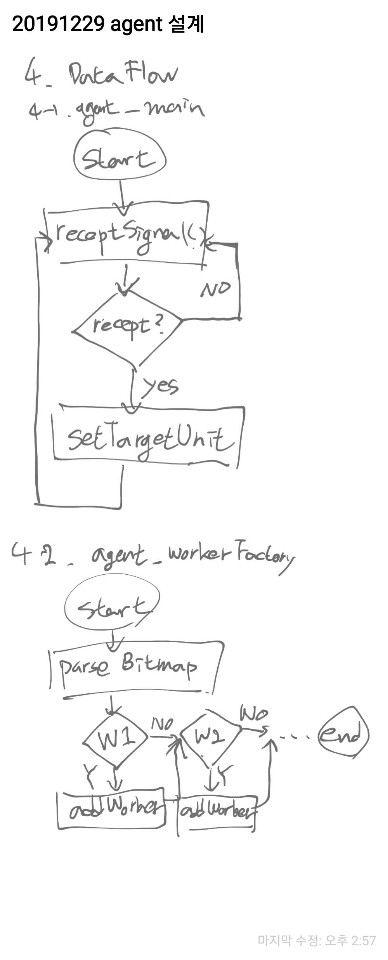 20191229 agent 설계
4. DataFlow
4-1. agent_main
Start
receptSignal()
NO
recept?
yes
setTargetUnit
4 2. agent_workerFactory
start
parse Bitmap
W1
NO
W2
NO
...
end
Y
Y
addWorker
addWorker
마지막 수정: 오후 2:57